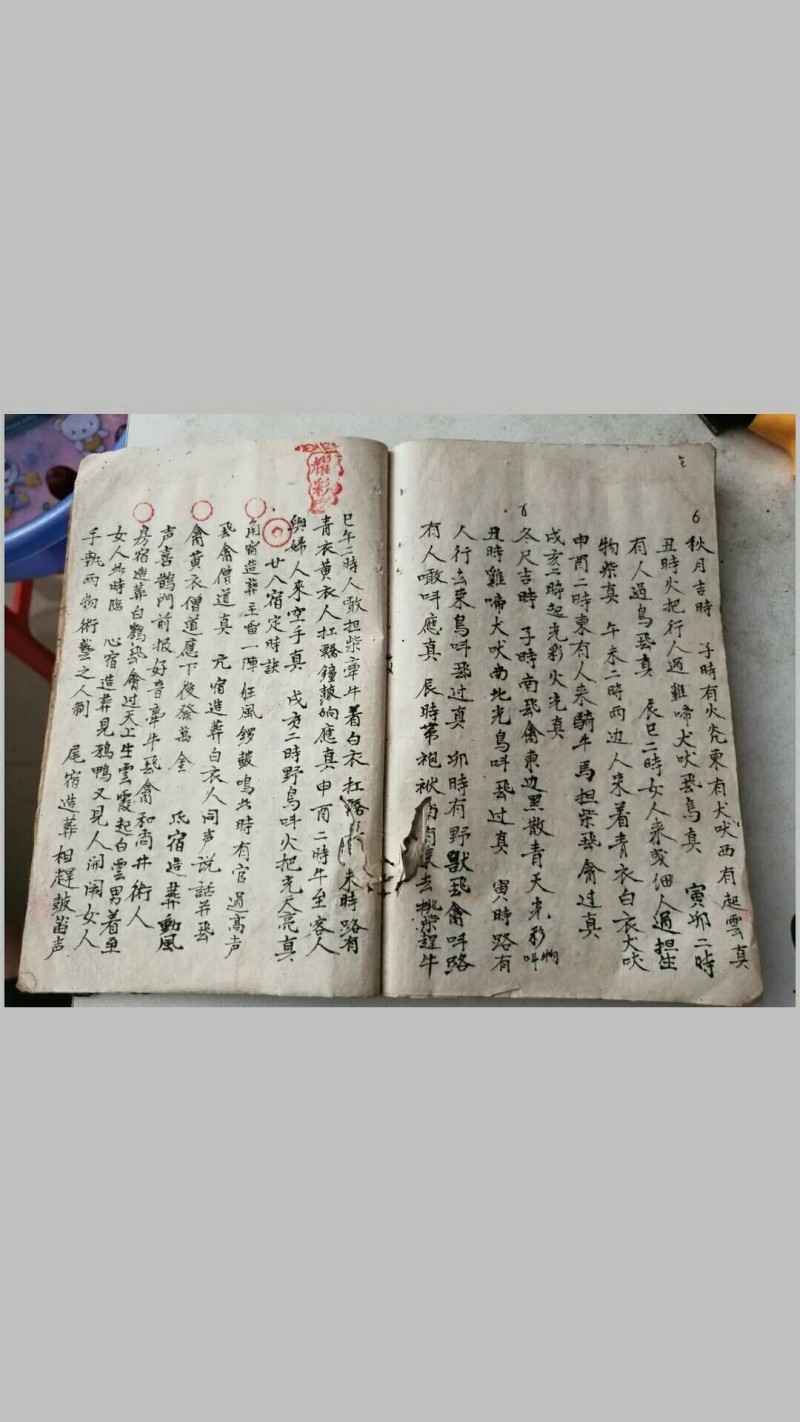 秋月吉時 子時有火光東有犬吠西有起雲真
丑時火把行人過雞啼犬吠飛鳥真 寅卯二時
有人過鳥飛真 辰巳二時女人來或個人過担生
物柴真 午未二時两边人來着青衣白衣犬吠
申酉二時東有人來騎牛馬担柴飛禽过真
戌亥二時起光彩火光真
冬尺吉時 子時南飛禽東边黑散青天光彩
物叫
丑時雞啼犬吠南北光鳥叫飛过真 寅時路有
人行去來鳥叫飛过真 卯時有野獸飛禽叫路
有人噉叫應真 辰時第袍袱 去挑柴趕牛
耀彩
巳午二時人噉担柴牽牛着白衣扛 未時路有
青衣黄衣人扛鑼鐘皷响應真申酉二時午至客人
與婦人來空手真 戌亥二時野鳥叫火把光天亮真
廿八宿定時訣
角宿造葬主雷一陣狂風鑼皷鳴此時有官過高声
飛禽僧道真 亢宿造葬白衣人同声説話并飛
禽黄衣僧道應下後發萬金 氐宿造葬動風
声喜鵲門前报好音牽牛飛禽和尚并術人
房宿造葬白鶴飛禽过天上生雲霞起白雲男着至
女人此時臨 心宿造葬見鵝鴨又見人閙閙女人
手執两物術藝之人制 尾宿造葬相趕皷笛声